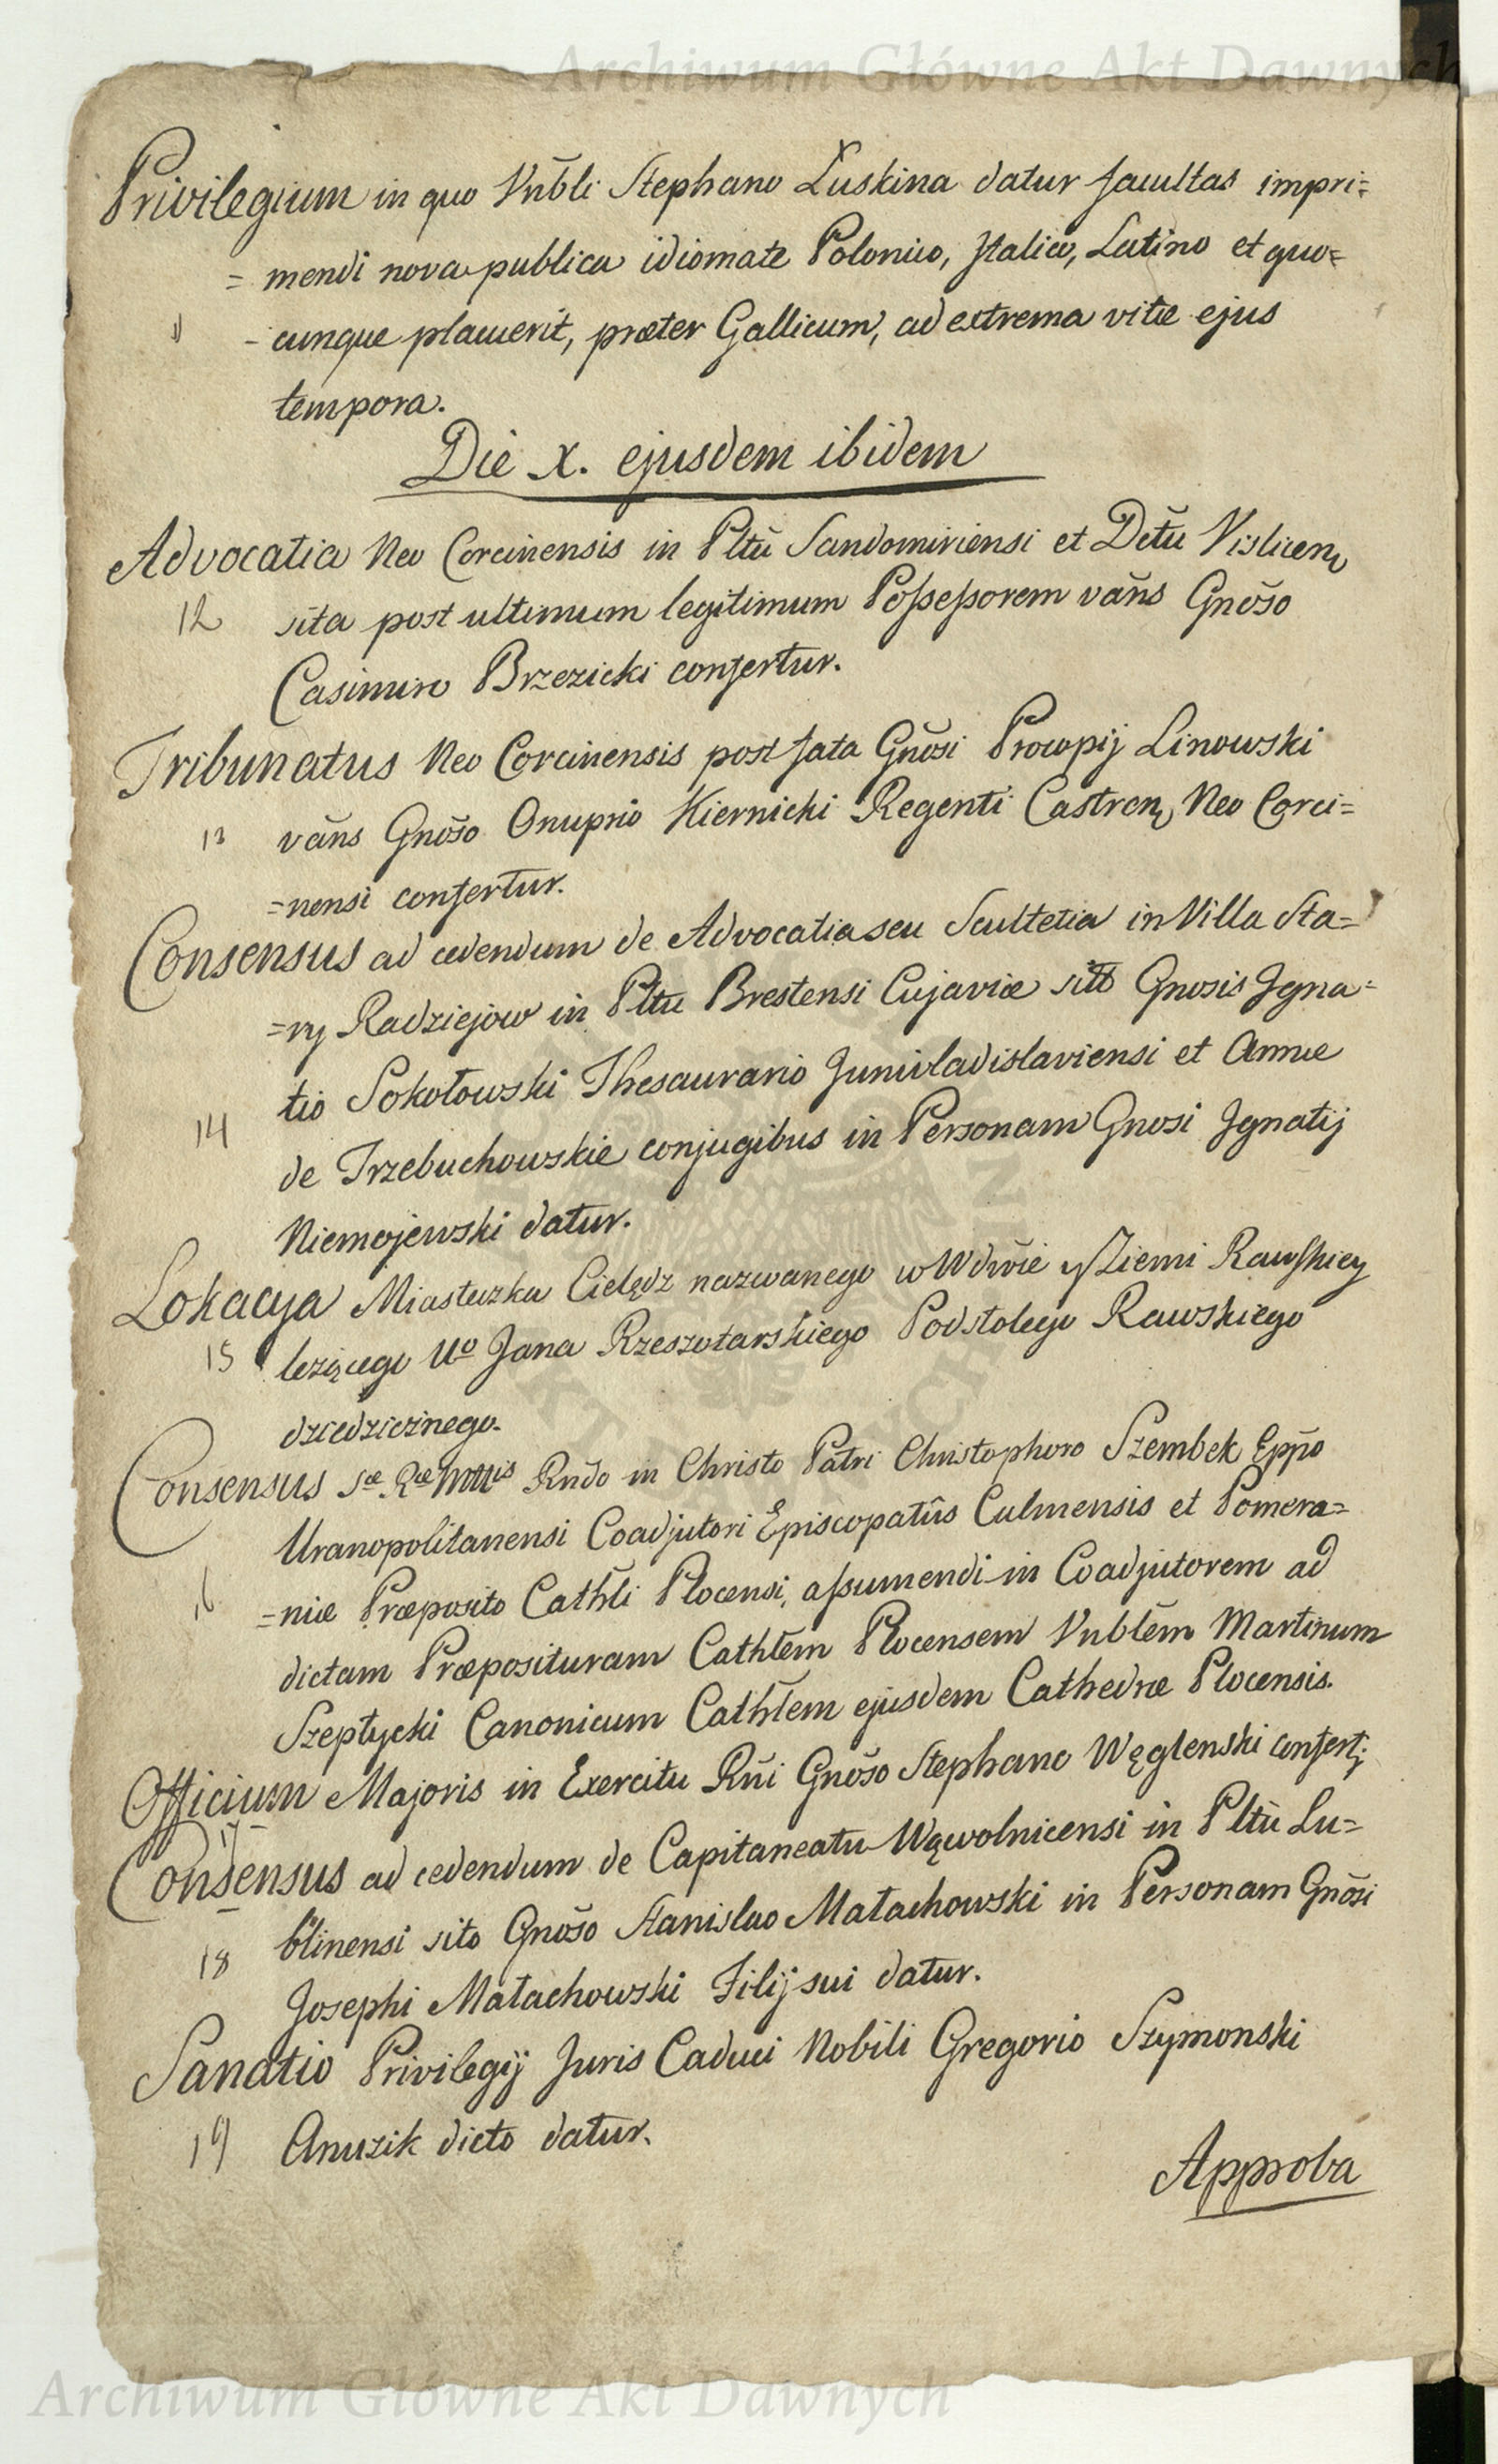 Archiwum Główne Akt Dawnych
Privilegium in quo Vnbli Stephano Łuskina datur facultas impri=
= mendi nova publica idiomate Polonico, Italico, Latino et quo=
11 - cunque placuerit, præter Gallicum, ad extrema vitæ ejus
tempora.
Die X. ejusdem ibidem
Advocatia Neo Corcinensis in Pltū Sandomiriensi et Dctū Vislicen
12 sita post ultimum legitimum Poſseſsorem vāns Gnōso
Casimiro Brzezicki confertur.
Tribunatus Neo Corcinensis post fata Gnōsi Procopij Linowski
13 vāns Gnōso Onuprio Kiernicki Regenti Castren Neo Corci=
=nensi confertur.
Consensus ad cedendum de Advocatia seu Scultetia in Villa Sta=
=ry Radziejow in Pltū Brestensi Cujaviæ sitis Gnosis Igna=
14 tio Sokołowski Thesaurario Junivladislaviensi et Annæ
de Trzebuchowskie conjugibus in Personam Gnosi Ignatij
Niemojewski datur.
Lokacya Miasteczka Cielądz nazwanego w Wdwie y Ziemi Rawskiey
15 leżącego Uo Jana Rzeszotarskiego Podstolego Rawskiego
dziedzicznego.
Consensus Sæ Ræ Mttis Rndo in Christo Patri Christophoro Szembek Eppo
Uranopolitanensi Coadjutori Episcopatûs Culmensis et Pomera=
16 =niæ Præposito Cathli Plocensi, aſsumendi in Coadjutorem ad
dictam Præposituram Cathlem Plocensem Vnblēm Martinum
Szeptycki Canonicum Cathlem ejusdem Cathedræ Plocensis.
Officium Majoris in Exercitu Rni Gnōso Stephano Węglenski confert;
17
Consensus ad cedendum de Capitaneatu Wąwolnicensi in Pltū Lu=
18 blinensi sito Gnōso Stanislao Małachowski in Personam Gnōsi
Josephi Małachowski Filij sui datur.
Sanatio Privilegij Juris Caduci Nobili Gregorio Szymonski
19 Anuzik dicto datur.
Approba
Archiwum Główne Akt Dawnych